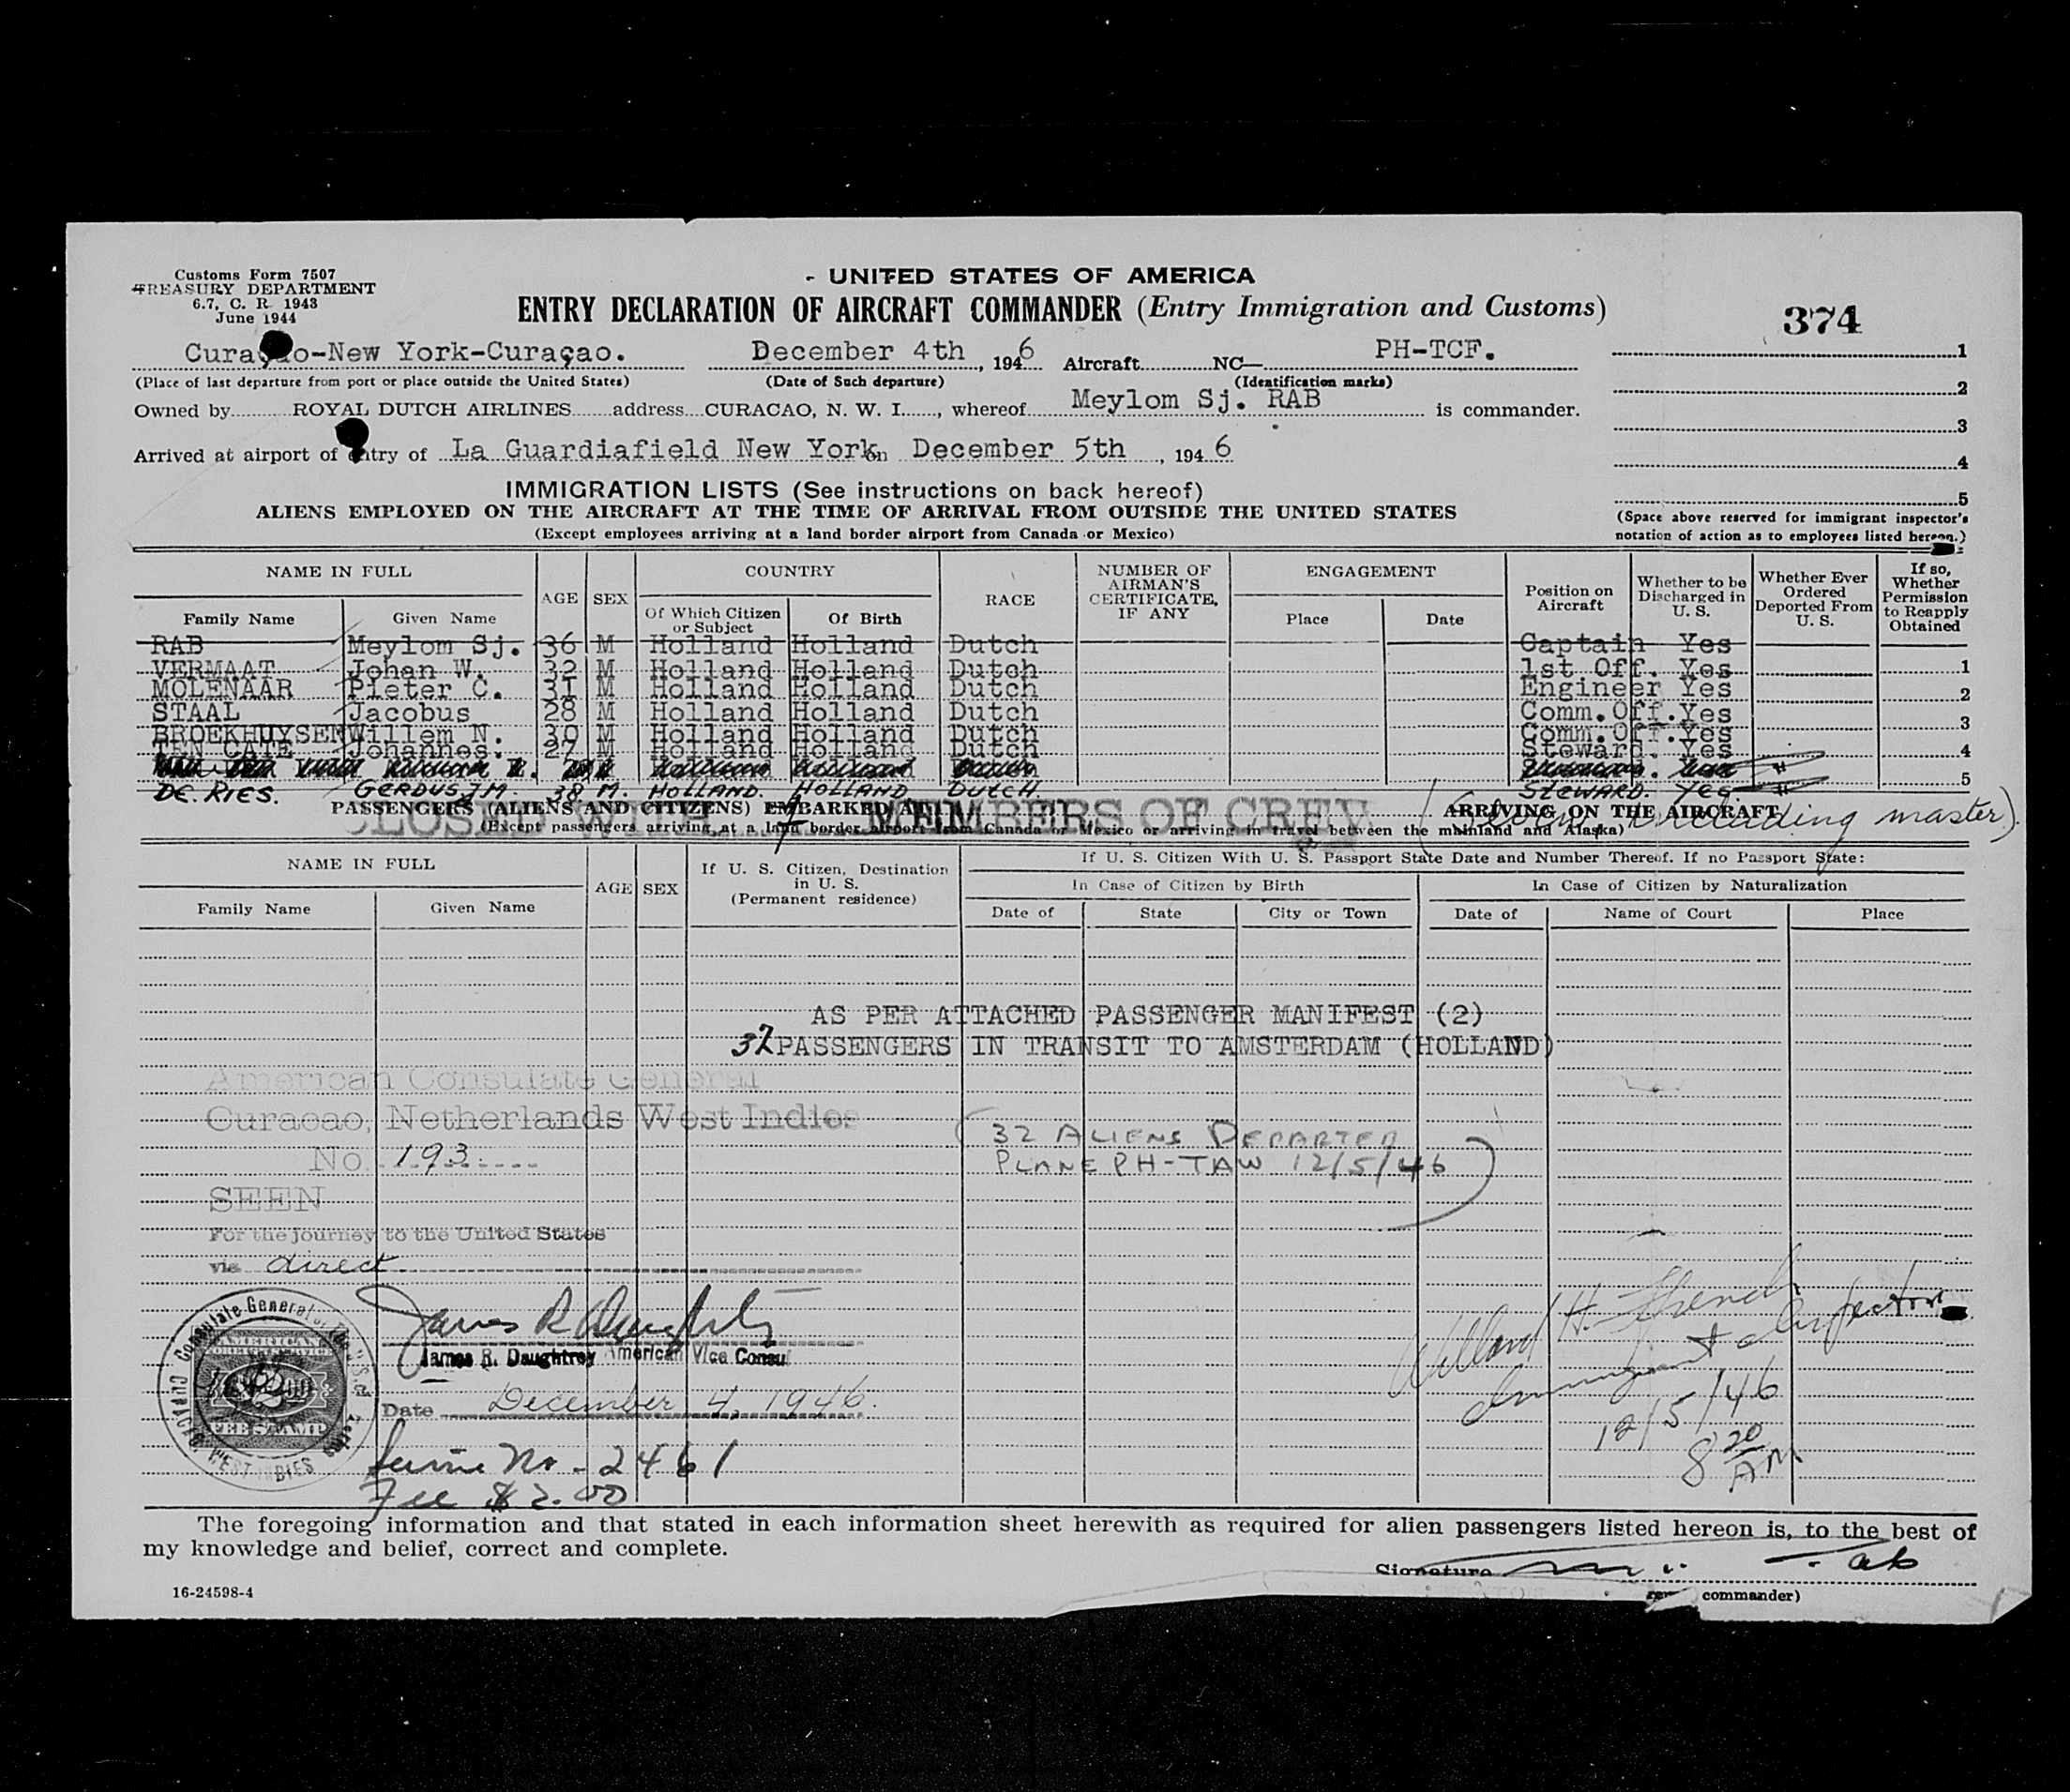 Customs Form 7507
TREASURY DEPARTMENT
6.7, C. R. 1943
June 1944
- UNITED STATES OF AMERICA
ENTRY DECLARATION OF AIRCRAFT COMMANDER (Entry Immigration and Customs)
374
Curaçao-New York-Curaçao. December 4th, 1946 Aircraft NC— PH-TCF. 1
(Place of last departure from port or place outside the United States) (Date of Such departure) (Identification marks) 2
Owned by ROYAL DUTCH AIRLINES address CURACAO, N. W. I., whereof Meylom Sj. RAB is commander. 3
Arrived at airport of entry of La Guardiafield New York on December 5th, 1946 4
5
IMMIGRATION LISTS (See instructions on back hereof)
ALIENS EMPLOYED ON THE AIRCRAFT AT THE TIME OF ARRIVAL FROM OUTSIDE THE UNITED STATES
(Except employees arriving at a land border airport from Canada or Mexico)
(Space above reserved for immigrant inspector's
notation of action as to employees listed hereon.)
NAME IN FULL AGE SEX COUNTRY RACE NUMBER OF AIRMAN'S CERTIFICATE, IF ANY ENGAGEMENT Position on Aircraft Whether to be Discharged in U. S. Whether Ever Ordered Deported From U. S. If so, Whether Permission to Reapply Obtained
Family Name Given Name Of Which Citizen or Subject Of Birth Place Date
RAB Meylom Sj. 36 M Holland Holland Dutch Captain Yes
VERMAAT Johan W. 32 M Holland Holland Dutch 1st Off. Yes 1
MOLENAAR Pieter C. 31 M Holland Holland Dutch Engineer Yes 2
STAAL Jacobus 28 M Holland Holland Dutch Comm.Off. Yes 3
BROEKHUYSEN Willem N. 30 M Holland Holland Dutch Comm.Off. Yes
TEN CATE Johannes. 27 M Holland Holland Dutch Steward. Yes 4
5
DE. RIES. GERDUS J.M. 38 M. HOLLAND. HOLLAND DUTCH. STEWARD. Yes
PASSENGERS (ALIENS AND CITIZENS) EMBARKED AT ARRIVING ON THE AIRCRAFT
CLOSED WITH 7 MEMBERS OF CREW including master).
(Except passengers arriving at a land border airport from Canada or Mexico or arriving in travel between the mainland and Alaska)
NAME IN FULL AGE SEX If U. S. Citizen, Destination in U. S. (Permanent residence) If U. S. Citizen With U. S. Passport State Date and Number Thereof. If no Passport State:
In Case of Citizen by Birth In Case of Citizen by Naturalization
Family Name Given Name Date of State City or Town Date of Name of Court Place
AS PER ATTACHED PASSENGER MANIFEST (2)
32 PASSENGERS IN TRANSIT TO AMSTERDAM (HOLLAND)
American Consulate General
Curacao, Netherlands West Indies
(32 ALIENS DEPARTED
No. 193
PLANE PH-TAW 12/5/46)
SEEN
For the journey to the United States
via direct
James R Daughtry
James R. Daughtrey American Vice Consul
Date December 4, 1946.
Consulate General of the U.S.A.
CURACAO, WEST INDIES
AMERICAN
FOREIGN SERVICE
FEE STAMP
Service No. - 2461
Fee $2.00
Willard H. French
Immigrant Inspector
12/5/46
8 20 AM
The foregoing information and that stated in each information sheet herewith as required for alien passengers listed hereon is, to the best of
my knowledge and belief, correct and complete.
Signature
commander)
16-24598-4